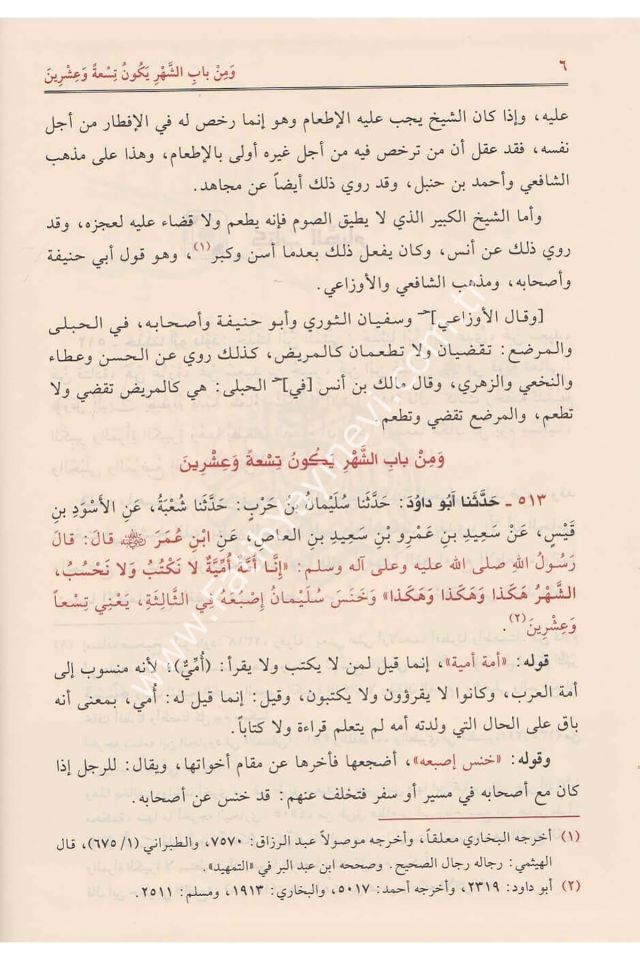 ٦
وَمِنْ بابِ الشَّهْرِ يَكُونُ تِسْعةً وَعِشْرِينَ
عليه، وإذا كان الشيخ يجب عليه الإطعام وهو إنما رخص له في الإفطار من أجل
نفسه، فقد عقل أن من ترخص فيه من أجل غيره أولى بالإطعام، وهذا على مذهب
الشافعي وأحمد بن حنبل، وقد روي ذلك أيضاً عن مجاهد.
وأما الشيخ الكبير الذي لا يطيق الصوم فإنه يطعم ولا قضاء عليه لعجزه، وقد
روي ذلك عن أنس، وكان يفعل ذلك بعدما أسن وكبر(١)، وهو قول أبي حنيفة
وأصحابه، ومذهب الشافعي والأوزاعي.
[وقال الأوزاعي] وسفيان الثوري وأبو حنيفة وأصحابه، في الحبلى
والمرضع: تقضيان ولا تطعمان كالمريض، كذلك روي عن الحسن وعطاء
والنخعي والزهري، وقال مالك بن أنس [في] الحبلى: هي كالمريض تقضي ولا
تطعم، والمرضع تقضي وتطعم.
وَمِنْ بابِ الشَّهْرِ يَكُونُ تِسْعةً وَعِشْرِينَ
٥١٣ ـ حَدَّثَنا أَبو داوُدَ: حَدَّثَنا سُلَيْمانُ بن حَرْبٍ: حَدَّثَنا شُعْبَةُ، عَنِ الأَسْوَدِ بنِ
قَيْسٍ، عَنْ سَعِيدِ بنِ عَمْرِو بنِ سَعِيدِ بنِ العاصِ، عَنِ ابْنِ عُمَرَ ﷺ قالَ: قالَ
رَسُولُ اللهِ صلى الله عليه وعلى آله وسلم: «إِنَّا أُمَّةٌ أُمِّيَّةٌ لا نَكْتُبُ وَلا نَحْسُبُ،
الشَّهْرُ هَكَذا وَهَكَذا وَهَكَذا» وَخَنَسَ سُلَيْمانُ إِصْبَعَهُ فِي الثَّالِثَةِ، يَعْنِي تِسْعاً
وَعِشْرِينَ(٢).
قوله: «أمة أمية»، إنما قيل لمن لا يكتب ولا يقرأ: (أُمِّيٌّ)، لأنه منسوب إلى
أمة العرب، وكانوا لا يقرؤون ولا يكتبون، وقيل: إنما قيل له: أُمي، بمعنى أنه
باق على الحال التي ولدته أمه لم يتعلم قراءة ولا كتاباً.
وقوله: «خنس إصبعه»، أضجعها فأخرها عن مقام أخواتها، ويقال: للرجل إذا
كان مع أصحابه في مسير أو سفر فتخلف عنهم: قد خنس عن أصحابه.
(١) أخرجه البخاري معلقاً، وأخرجه موصولاً عبد الرزاق: ٧٥٧٠، والطبراني (١/ ٦٧٥)، قال
الهيثمي: رجاله رجال الصحيح. وصححه ابن عبد البر في «التمهيد».
(٢) أبو داود: ٢٣١٩، وأخرجه أحمد: ٥٠١٧، والبخاري: ١٩١٣، ومسلم: ٢٥١١.